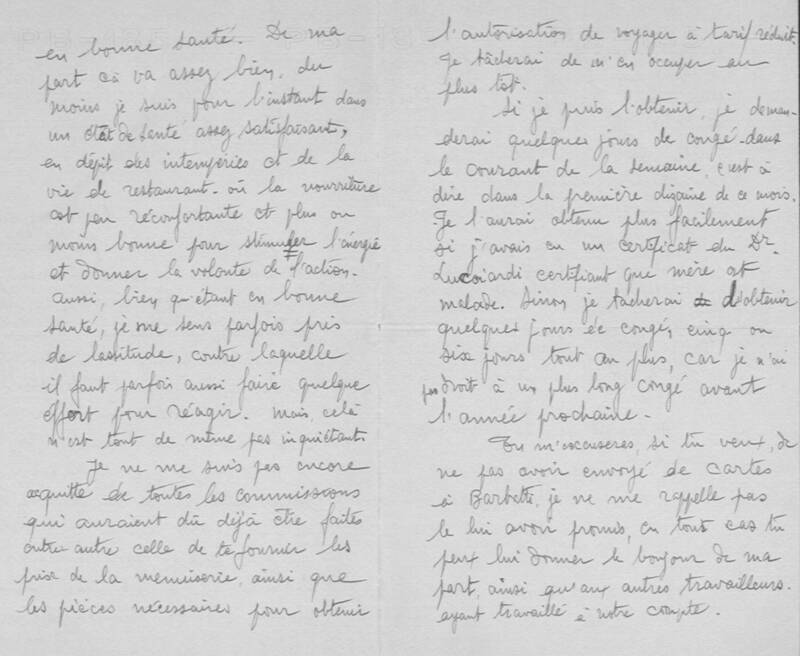 en bonne santé. De ma
part cà va assez bien, du
moins je suis pour l'instant dans
un état de santé assez satisfaisant,
en dépit des intempéries et de la
vie de restaurant. où la nourriture
est peu réconfortante et plus ou
moins bonne pour stimuler l'énergie
et donner la volonté de l'action.
aussi, bien qu'étant en bonne
santé, je me sens parfois pris
de lassitude, contre laquelle
il faut parfois aussi faire quelque
effort pour réagir. Mais, celà
n'est tout de même pas inquiétant.
Je ne me suis pas encore
acquitté de toutes les commissions
qui auraient dû déjà être faites
entre autre celle de te fournir les
prix de la menuiserie, ainsi que
les pièces nécessaires pour obtenir
l'autorisation de voyager à tarif réduit.
Je tâcherai de m'en occuper au
plus tôt.
Si je puis l'obtenir, je deman-
derai quelques jours de congé dans
le courant de la semaine, c'est à
dire, dans la première dizaine de ce mois.
Je l'aurai obtenu plus facilement
si j'avais eu un certificat du Dr.
Lucciardi certifiant que mère est
malade. Sinon je tacherai d'obtenir
quelques jours de congé, cinq ou
six jours tout au plus, car je n'ai
pas droit à un plus long congé avant
l'année prochaine.
Tu m'excuseras, si tu veux, de
ne pas avoir envoyé de cartes
à je ne me rappelle pas
le lui avoir promis, en tous cas tu
peux lui donner le bonjour de ma
part, ainsi qu'aux autres travailleurs.
ayant travaillé à notre compte.